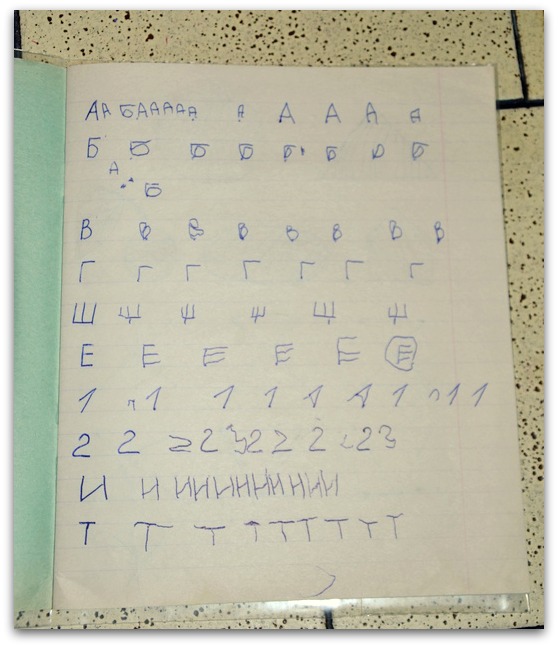 АА БААААА А А А А А А
Б Б Б Б Б Б Б Б
А
Б
В В В В В В В В
Г Г Г Г Г Г Г
Ш Ш Ш Ш Ш Ш
Е Е Е Е Е Е
1 1 1 1 1 1 1 1 1
2 2 2 2 3 2 2 2 2 2 3
И И И И И И И И И И И
Т Т Т Т Т Т Т Т Т